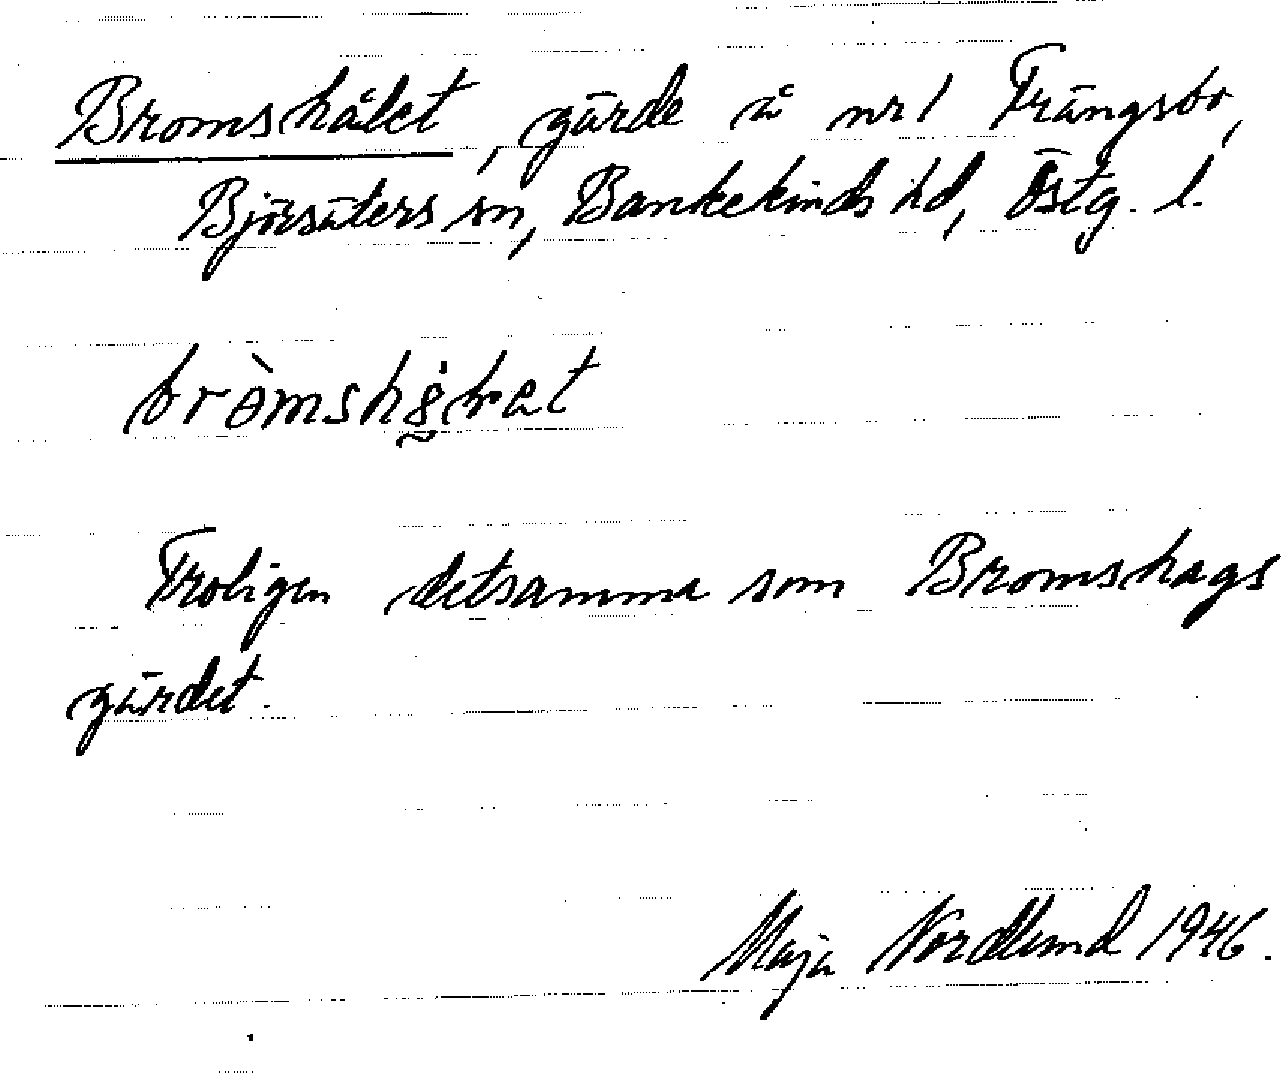 Bromshålet, gärde å nr 1 Trängsbo,
Björsäters sn, Bankekinds hd, Östg. l.
Troligen detsamma som Bromshags
gärdet.
Maja Nordlund 1946.